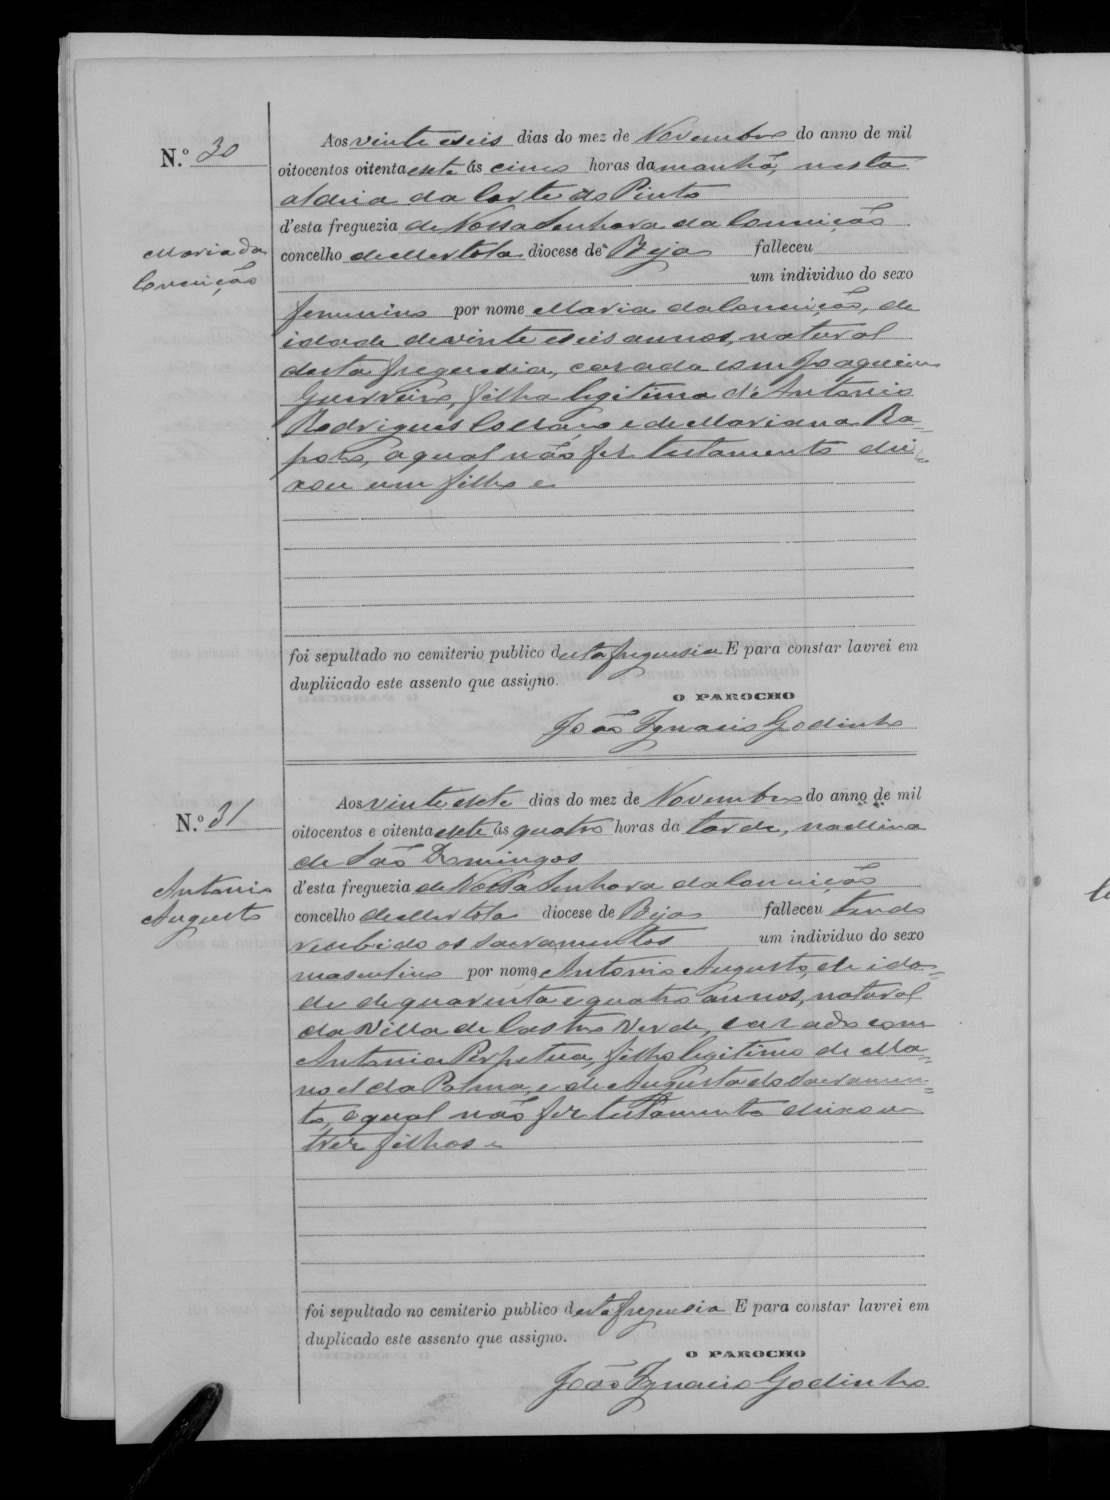 N.º 30
Maria da
Conceição
Aos vinte e seis dias do mez de Novembro do anno de mil
oitocentos oitenta e sete ás cinco horas da manhã, nesta
aldeia da Corte do Pinto
d'esta freguezia de Nossa Senhora da Conceição
concelho de Mertola diocese de Beja falleceu
um individuo do sexo
femenino por nome Maria da Conceição, de
idade de vinte e seis annos, natural
desta freguesia, casada com Joaquim
Guerreiro, filha legitima de Antonio
Rodrigues Collaço e de Mariana Ra-
poso, a qual não fez testamento dei-
xou um filho e
foi sepultado no cemiterio publico desta freguesia E para constar lavrei em
dupliicado este assento que assigno.
O PAROCHO
João Ignacio Godinho
N.º 31
Antonio
Augusto
Aos vinte e sete dias do mez de Novembro do anno de mil
oitocentos e oitenta e sete ás quatro horas da tarde, na Mina
de São Domingos
d'esta freguezia de Nossa Senhora da Conceição
concelho de Mertola diocese de Beja falleceu tendo
recebido os sacramentos um individuo do sexo
masculino por nome Antonio Augusto, de ida-
de de quarenta e quatro annos, natural
da Villa de Castro Verde, casado com
Antonia Perpetua, filho legitimo de Ma-
noel da Palma, e de Augusta do Sacramen-
to, o qual não fez testamento deixou
trez filhos e
foi sepultado no cemiterio publico desta freguesia E para constar lavrei em
duplicado este assento que assigno.
O PAROCHO
João Ignacio Godinho